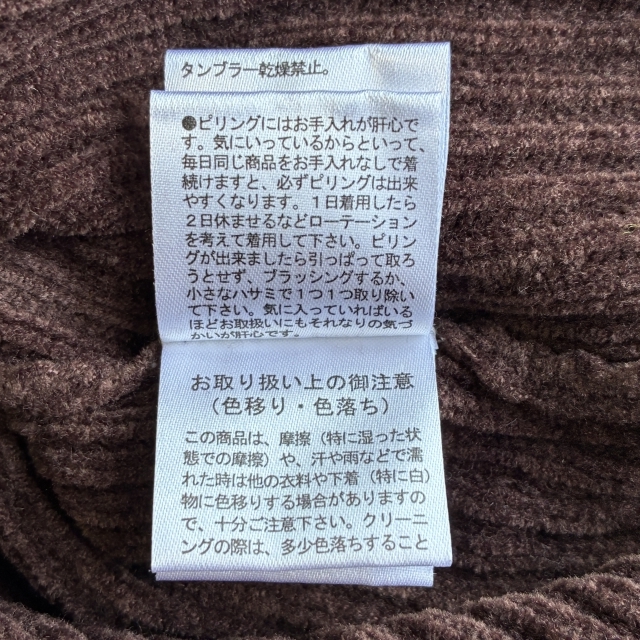 タンブラー乾燥禁止。
●ピリングにはお手入れが肝心で
す。気にいっているからといって、
毎日同じ商品をお手入れなしで着
続けますと、必ずピリングは出来
やすくなります。1日着用したら
2日休ませるなどローテーション
を考えて着用して下さい。ピリン
グが出来ましたら引っぱって取ろ
うとせず、ブラッシングするか、
小さなハサミで1つ1つ取り除い
て下さい。気に入っていればいる
ほどお取扱いにもそれなりの気づ
かいが肝心です。
お取り扱い上の御注意
(色移り・色落ち)
この商品は、摩擦(特に湿った状
態での摩擦)や、汗や雨などで濡
れた時は他の衣料や下着(特に白)
物に色移りする場合がありますの
で、十分ご注意下さい。クリーニ
ングの際は、多少色落ちすること